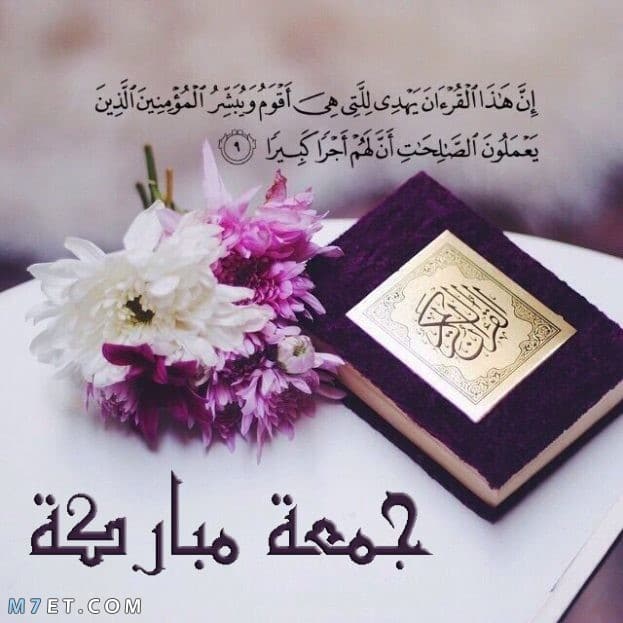 إِنَّ هَٰذَا ٱلْقُرْءَانَ يَهْدِى لِلَّتِى هِىَ أَقْوَمُ وَيُبَشِّرُ ٱلْمُؤْمِنِينَ ٱلَّذِينَ
يَعْمَلُونَ ٱلصَّٰلِحَٰتِ أَنَّ لَهُمْ أَجْرًا كَبِيرًا ٩
القرآن الكريم
جمعة مباركة
M7ET.COM